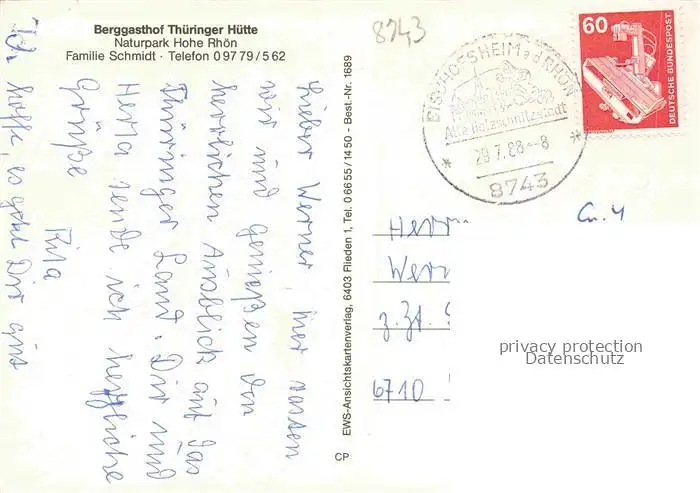 Berggasthof Thüringer Hütte
Naturpark Hohe Rhön
Familie Schmidt · Telefon 0 97 79 / 5 62
8743
BISCHOFSHEIM a d RHÖN
Alte Holzschnitzstadt
29.7.88--8
8743
60
DEUTSCHE BUNDESPOST
Lieber Werner, hier rasten
wir und genießen den
herrlichen Ausblick auf das
Thüringer Land. Dir und
Herta sende ich herzliche
Grüße
Rita
Ich hoffe, es geht Dir gut
EWS-Ansichtskartenverlag, 6403 Flieden 1, Tel. 0 66 55 / 14 50 - Best.-Nr. 1689
CP
Herrn
Wern
z. Zt.
6710
privacy protection
Datenschutz